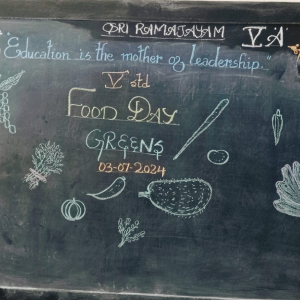 SRI RAMAJAYAM
V A
"Education is the mother of leadership."
V std
FOOD DAY
GREENS
03-07-2024